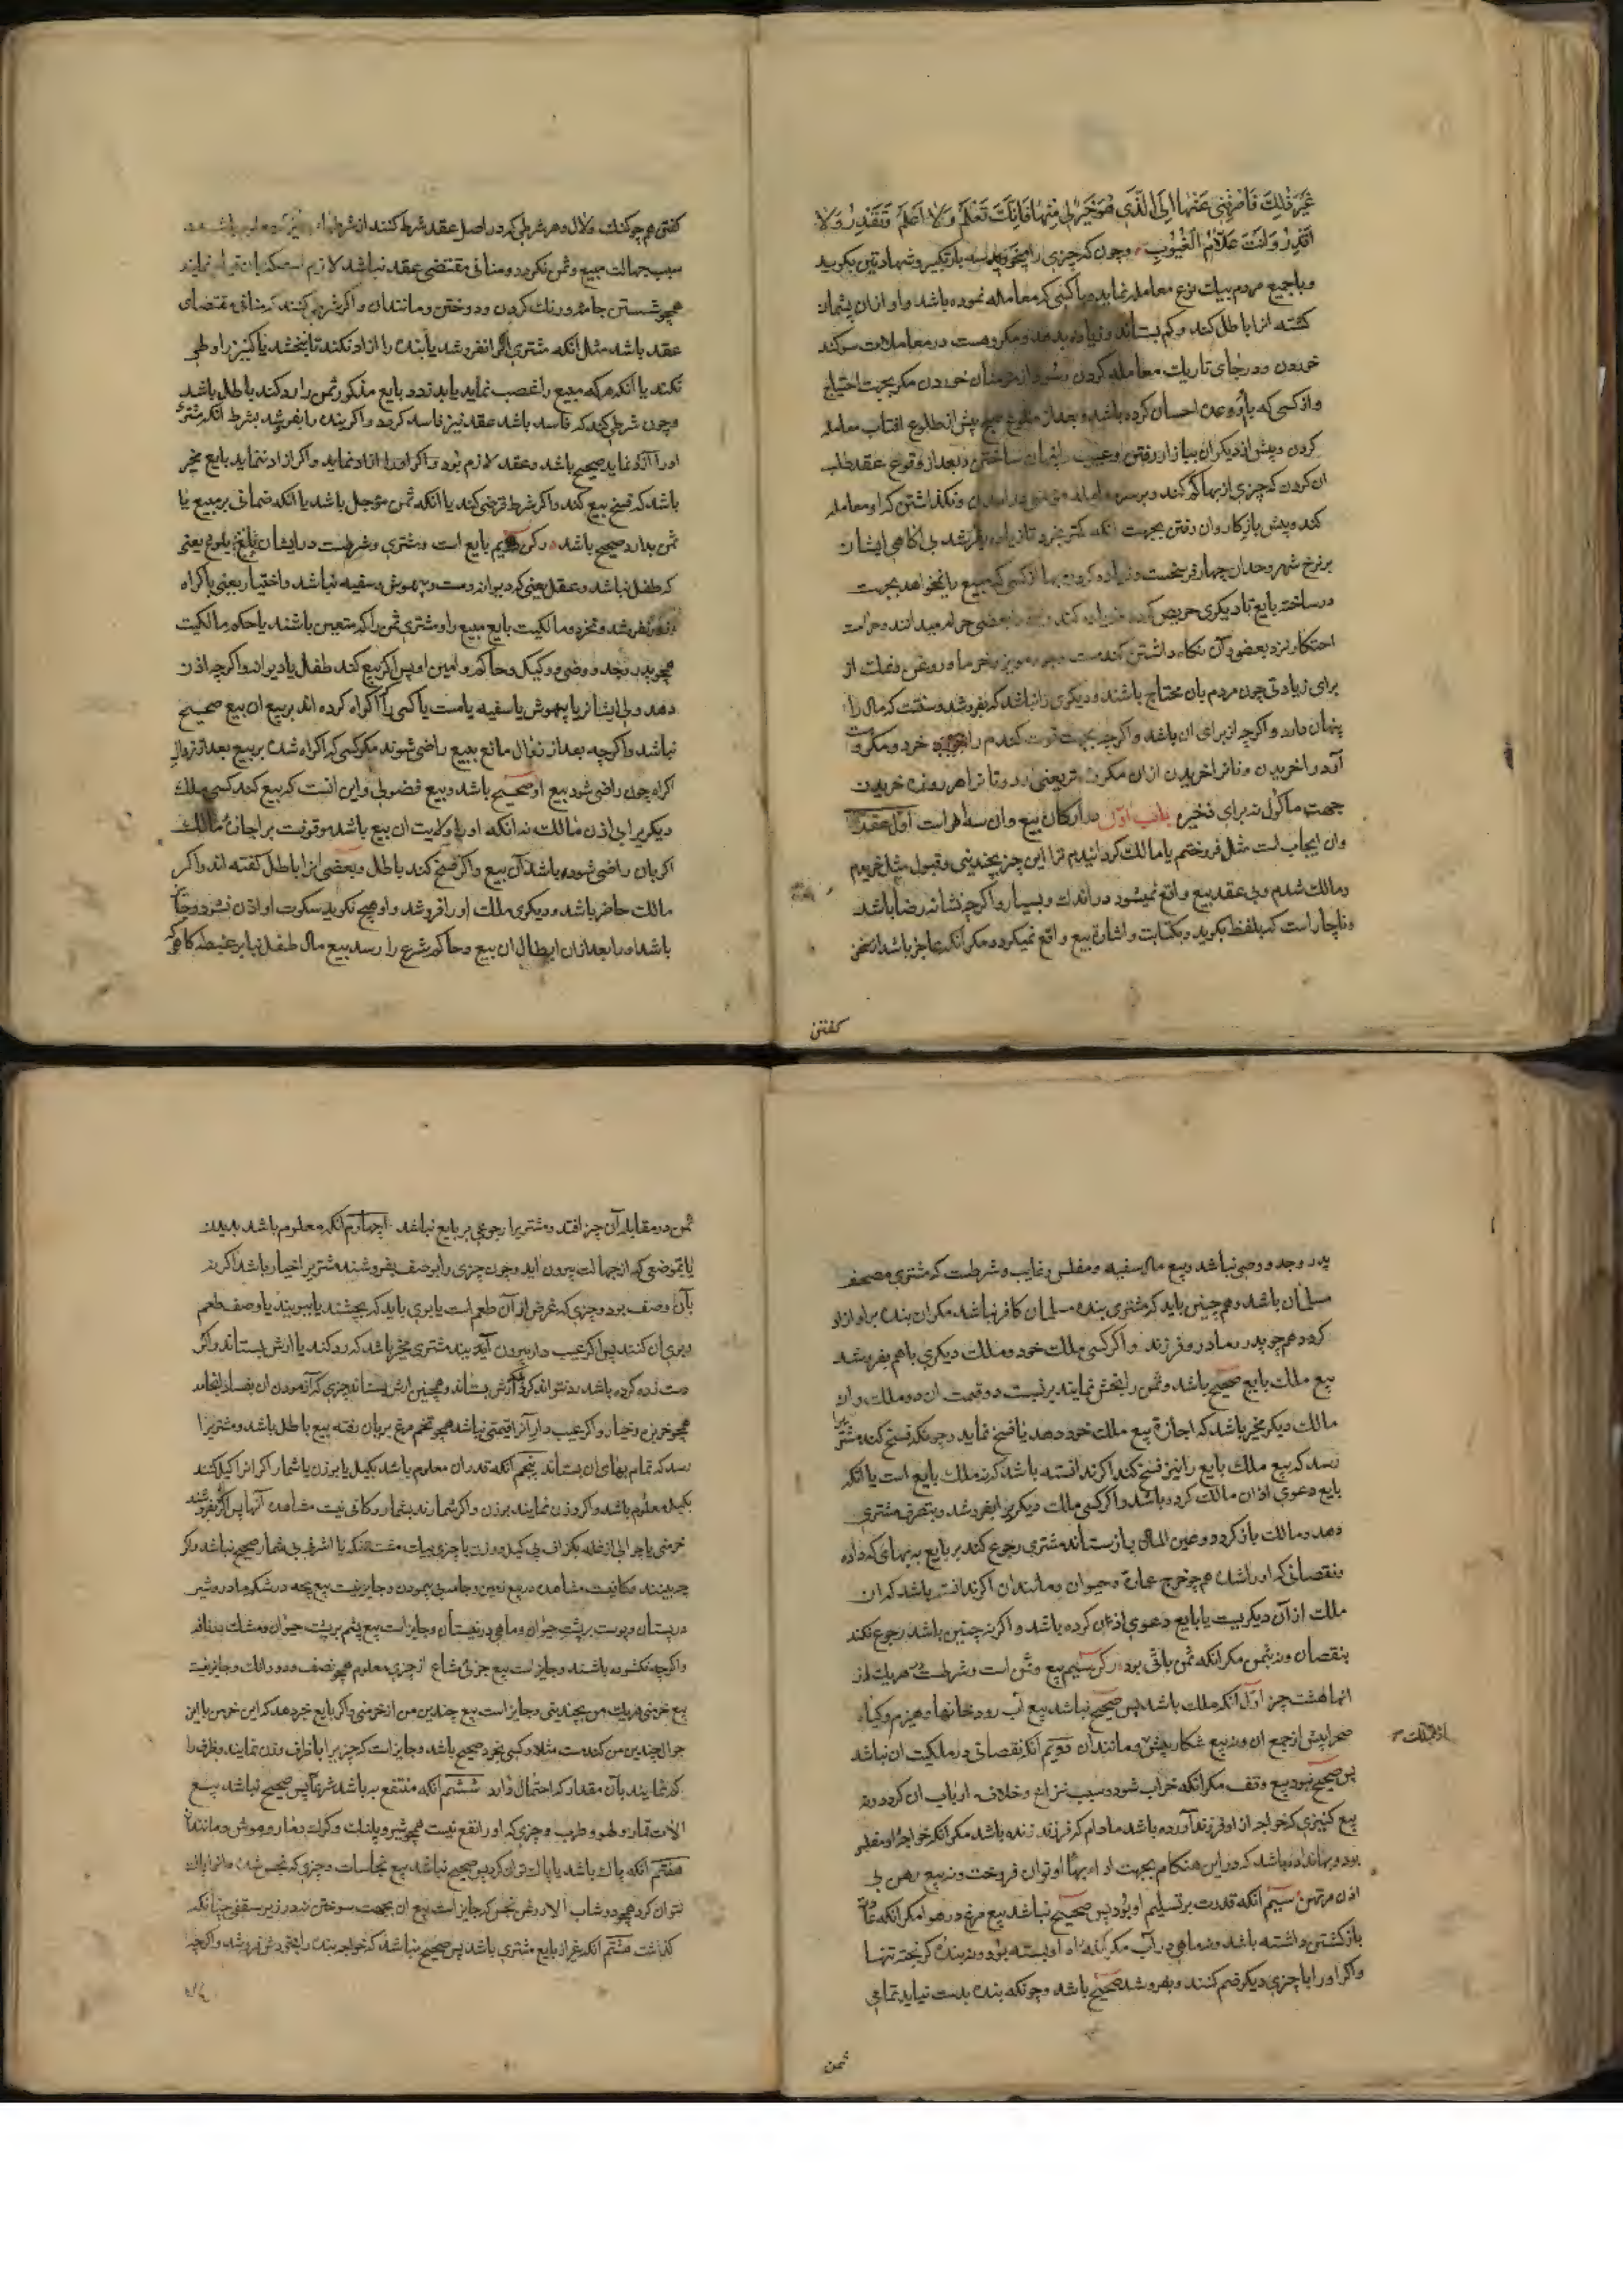 غَیْرَ ذٰلِكَ فَاصْرِفْنِی عَنْهَا اِلَی الَّذِی هُوَ خَیْرٌ لِی مِنْهَا فَاِنَّكَ تَعْلَمُ وَلَا اَعْلَمُ وَتَقْدِرُ وَلَا
اَقْدِرُ وَاَنْتَ عَلَّامُ الْغُیُوبِ وچون که چیزی را بخرد سه بار تکبیر وشهادتین بکوید
وباجمیع مردم بیك نوع معامله نماید وباکسی که معامله نموده باشد واو ازان پشمان
کشته انرا باطل کند وکم بستاند وزیاده بدهد ومکروهست در معاملات سوکند
خوردن ودر جای تاریك معامله کردن وسود از مومنان خوردن مکر بجهت احتیاج
واز کسی که باو وعده احسان کرده باشد وبعد از طلوع صبح پیش از طلوع افتاب معامله
کردن وپیش از دیکران ببازار رفتن وعیب ساختن وبعد از وقوع عقد طلب
ان کردن که چیزی از بها کم کند وبر سر معامله ونکذاشتن که او معامله
کند وپیش باز کاروان رفتن بجهت انکه کمتر بخرد تا زیاده بفروشد بی اکاهی ایشان
بر نرخ شهر وحد ان چهار فرسخست وزیاده کردن بها از کسی که مبیع را نخواهد بجهت
در ساخته بایع تا دیکری حریص کردد وزیاده کند وبعضی حرام میدانند وحرامست
احتکار نزد بعضی وآن نکاه داشتن کندمست وجو ومویز وخرما وروغن ونمك از
برای زیادتی چون مردم بان محتاج باشند ودیکری نباشد که بفروشد وسنت که مال را
پنهان دارد واکرچه از برای ان باشد واکرچه بجهت قوت کندم را خرد ومکروهست
آرد را خریدن ونانرا خریدن ازان مکروه تر یعنی آرد ونانرا هر روزه خریدن
جهت ماکول نه برای ذخیره باب اول در ارکان بیع وان سه است اول عقد
وان ایجاب است مثل فروختم یا مالك کردانیدم ترا این چیز بچندینی وقبول مثل خریدم
ومالك شدم وبی عقد بیع واقع نمیشود در اندك وبسیار واکرچه نشانه رضا باشد
وناچار است که بلفظ بکوید وبکتابت واشارة بیع واقع نمیکردد مکر آنکه عاجز باشد از سخن
کفتن
کفتن هم چو کنك ولال وهر شرطی که در اصل عقد شرط کنند ان شرط
سبب جهالت مبیع وثمن نکردد ومنافی مقتضی عقد نباشد لازم است که بان نمایند
همچو شستن جامه ورنك کردن ودوختن ومانند ان واکر شرطی کنند که منافی مقتضای
عقد باشد مثل آنکه مشتری انرا نفروشد یا بنده را ازاد نکند تا نبخشد یا کنیز را وطی
نکند یا آنکه هرکه مبیع را غصب نماید یا بدزدد بایع مذکور ثمن را رد کند باطل باشد
وچون شرطی کند که فاسد باشد عقد نیز فاسد کردد واکر بنده را بفروشد بشرط آنکه مشتری
اورا آزاد نماید صحیح باشد وعقد لازم بود واکر اورا ازاد نماید واکر ازاد ننماید بایع مخیر
باشد که فسخ بیع کند واکر شرط قرضی کند یا آنکه ثمن مؤجل باشد یا آنکه ضمانی بر مبیع یا
ثمن بدارد صحیح باشد رکن دویم بایع است ومشتری وشرطست در ایشان بلوغ یعنی
که طفل نباشد وعقل یعنی که دیوانه ومست وبیهوش وسفیه نباشد واختیار یعنی باکراه
نفروشد ونخرد ومالکیت بایع مبیع را ومشتری ثمن را که متعین باشند یا حکم مالکیت
همچو پدر وجد ووصی ووکیل وحاکم وامین او پس اکر بیع کند طفل یا دیوانه واکرچه اذن
دهد ولی ایشانرا یا بیهوش یا سفیه یا مست یا کسی را که اکراه کرده اند بر بیع ان بیع صحیح
نباشد واکرچه بعد از زوال مانع ببیع راضی شوند مکر کسی که اکراه شده بر بیع بعد از زوال
اکراه چون راضی شود بیع او صحیح باشد وبیع فضولی واین انست که بیع کند کسی ملك
دیکریرا بی اذن مالك نه آنکه اورا ولایت ان بیع باشد موقوفست بر اجازه مالك
اکر بان راضی شود باشد آن بیع واکر فسخ کند باطل وبعضی انرا باطل کفته اند واکر
مالك حاضر باشد ودیکری ملك اورا فروشد واو هیچ نکوید سکوت او اذن نشود وجایز
باشد اورا بعد ازان ابطال ان بیع وحاکم شرع را رسد بیع مال طفل بنا بر غبطه کاهی که
پدر وجد ووصی نباشد وبیع مال سفیه ومفلس وغایب وشرطست که مشتری مصحف
مسلمان باشد وهم چنین باید که مشتری بنده مسلمان کافر نباشد مکر ان بنده بر او ازاد
کردد همچو پدر ومادر وفرزند واکر کسی ملك خود وملك دیکری باهم بفروشد
بیع ملك بایع صحیح باشد وثمن را بخش نمایند بر نسبت دو قیمت ان دو ملك وان
مالك دیکر مخیر باشد که اجازة بیع ملك خود دهد یا فسخ نماید وچونکه فسخ کند مشتریرا
رسد که بیع ملك بایع را نیز فسخ کند اکر ندانسته باشد که نه ملك بایع است یا آنکه
بایع دعوی اذن مالك کرده باشد واکر کسی ملك دیکریرا بفروشد وبتصرف مشتری
دهد ومالك باز کردد وعین المال باز ستاند مشتری رجوع کند بر بایع به بهای که داده
ونقصانی که اورا شده هم چو خرج عمارة وحیوان ومانند ان اکر ندانسته باشد که ان
ملك از آن دیکریست یا بایع دعوی اذن کرده باشد واکر نه چنین باشد رجوع نکند
بنقصان ونه بثمن مکر انکه ثمن باقی بود رکن سیم مبیع وثمن است وشرطست در هریك از
انها هشت چیز اول آنکه ملك باشد پس صحیح نباشد بیع آب رودخانها وهیزم وکیاه
صحرا پیش از جمع ان ونه بیع شکار پیش ومانند آن دویم انکه نقصانی در ملکیت ان نباشد
پس صحیح نبود بیع وقف مکر انکه خراب شود وسبب نزاع وخلاف ارباب ان کردد ونه
بیع کنیزی که خواجه از او فرزند آورده باشد مادام که فرزند زنده باشد مکر انکه خواجه او مفلس
بود وبها نداده باشد که در این هنکام بجهت ادا بهاء او توان فروخت ونه بیع رهن بی
اذن مرتهن سیم آنکه قدرت بر تسلیم او بود پس صحیح نباشد بیع مرغ در هوا مکر آنکه عادة
بازکشتن داشته باشد ونه ماهی در آب مکر آنکه راه او بسته بود ونه بنده کریخته تنها
واکر اورا با چیزی دیکر ضم کنند وبفروشد صحیح باشد وچونکه بنده بدست نیاید تمامی
ثمن
ثمن در مقابله آن چیز افتد ومشتریرا رجوعی بر بایع نباشد چهارم آنکه معلوم باشد بدیدن
یا بوصفی که از جهالت بیرون آید وچون چیزی را بوصف بفروشند مشتریرا خیار باشد اکر نه
بآن وصف بود وچیزی که غرض از آن طعم است یا بوی باید که بچشند یا ببویند یا وصف طعم
وبوی ان کنند پس اکر عیب دار بیرون آید مشتری مخیر باشد که رد کند یا ارش بستاند واکر
دست زده کرده باشد رد نتواند کرد بلکه ارش بستاند وهمچنین ارش بستاند چیزی که آزمودن ان بفساد انجامد
همچو خربزه وخیار واکر عیب دار آنرا قیمتی نباشد همچو تخم مرغ بزیان رفته بیع باطل باشد ومشتریرا
رسد که تمام بهای ان بستاند پنجم آنکه قدر ان معلوم باشد بکیل یا بوزن یا شمار اکر انرا کیل کنند
بکیل معلوم باشد واکر وزن نمایند بوزن واکر شمارند بشمار وکافی نیست مشاهده آنها پس اکر بفروشند
خرمنی یا جوالی از غله بکزاف بی کیل ووزن یا چیزی بیك مشت نقره یا اشرفی بی شمار صحیح نباشد واکر
چه بینند وکافیست مشاهده در بیع زمین وجامه بی پیمودن وجایز نیست بیع بچه در شکم مادر وشیر
در پستان وپوست بر پشت حیوان وماهی در نیستان وجایز است بیع پشم بر پشت حیوان ومشك در نافه
واکرچه نکشوده باشند وجایز است بیع جزئی مشاع از چیزی معلوم همچو نصف ودو دانك وجایز نیست
بیع خرمنی هریك من بچندینی وجایز است بیع چندین من از خرمنی واکر بایع خبر دهد که این خرمن یا این
جوال چندین من کندمست مثلا وکسی بخرد صحیح باشد وجایز است که چیزیرا با ظرف وزن نمایند وظرف را
کم نمایند بآن مقدار که احتمال دارد ششم آنکه منتفع به باشد شرعا پس صحیح نباشد بیع
الات قمار ولهو وطرب وچیزی که اورا نفع نیست همچو شیر وپلنك وکرك ومار وموش ومانند آن
هفتم آنکه پاك باشد یا پاك توان کرد پس صحیح نباشد بیع نجاسات وچیزی که نجس شده وانرا پاك
نتوان کرد همچو دوشاب الا روغن نجس که جایز است بیع ان بجهت سوختن نه در زیر سقفی چنانکه
کذشت هشتم آنکه غیر از بایع مشتری باشد پس صحیح نباشد که خواجه بنده را بخودش فروشد واکرچه